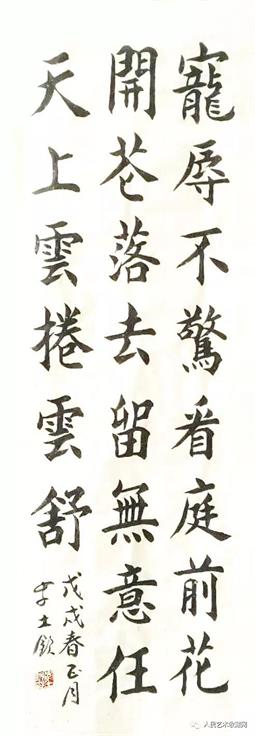 寵辱不驚看庭前花
開花落去留無意任
天上雲捲雲舒
戊戌春正月
李士欽
人民艺术收藏网